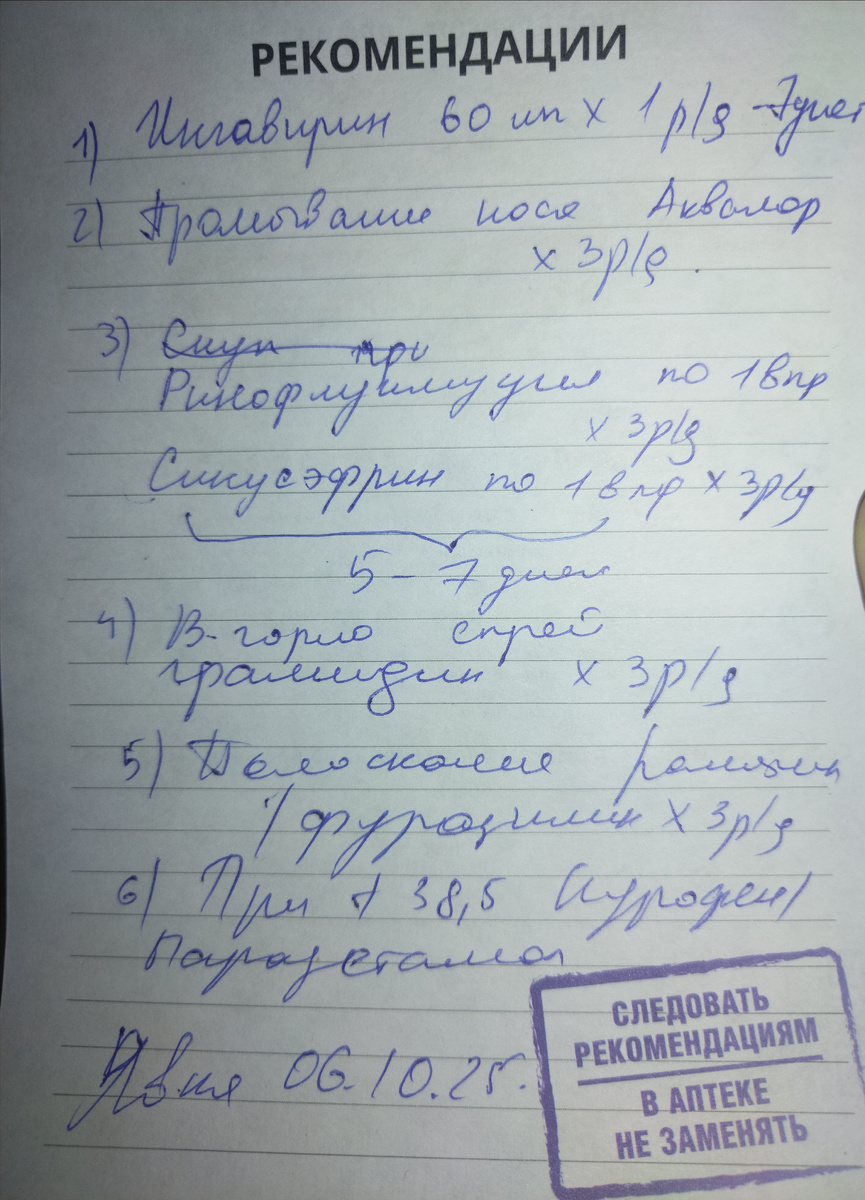 РЕКОМЕНДАЦИИ
1) Ингавирин 60 мг х 1 р/д - 7 дней
2) Промывание носа Аквалор
х 3р/д.
3) при
Ринофлуимуцил по 1 впр
х 3р/д
Синусэфрин по 1 впр х 3р/д
5 - 7 дней
4) В горло спрей
грамидин х 3р/д
5) Полоскание ромашки
/ фурацилин х 3р/д
6) При t 38,5 Нурофен/
Парацетамол
Явка 06.10.25.
СЛЕДОВАТЬ
РЕКОМЕНДАЦИЯМ
В АПТЕКЕ
НЕ ЗАМЕНЯТЬ